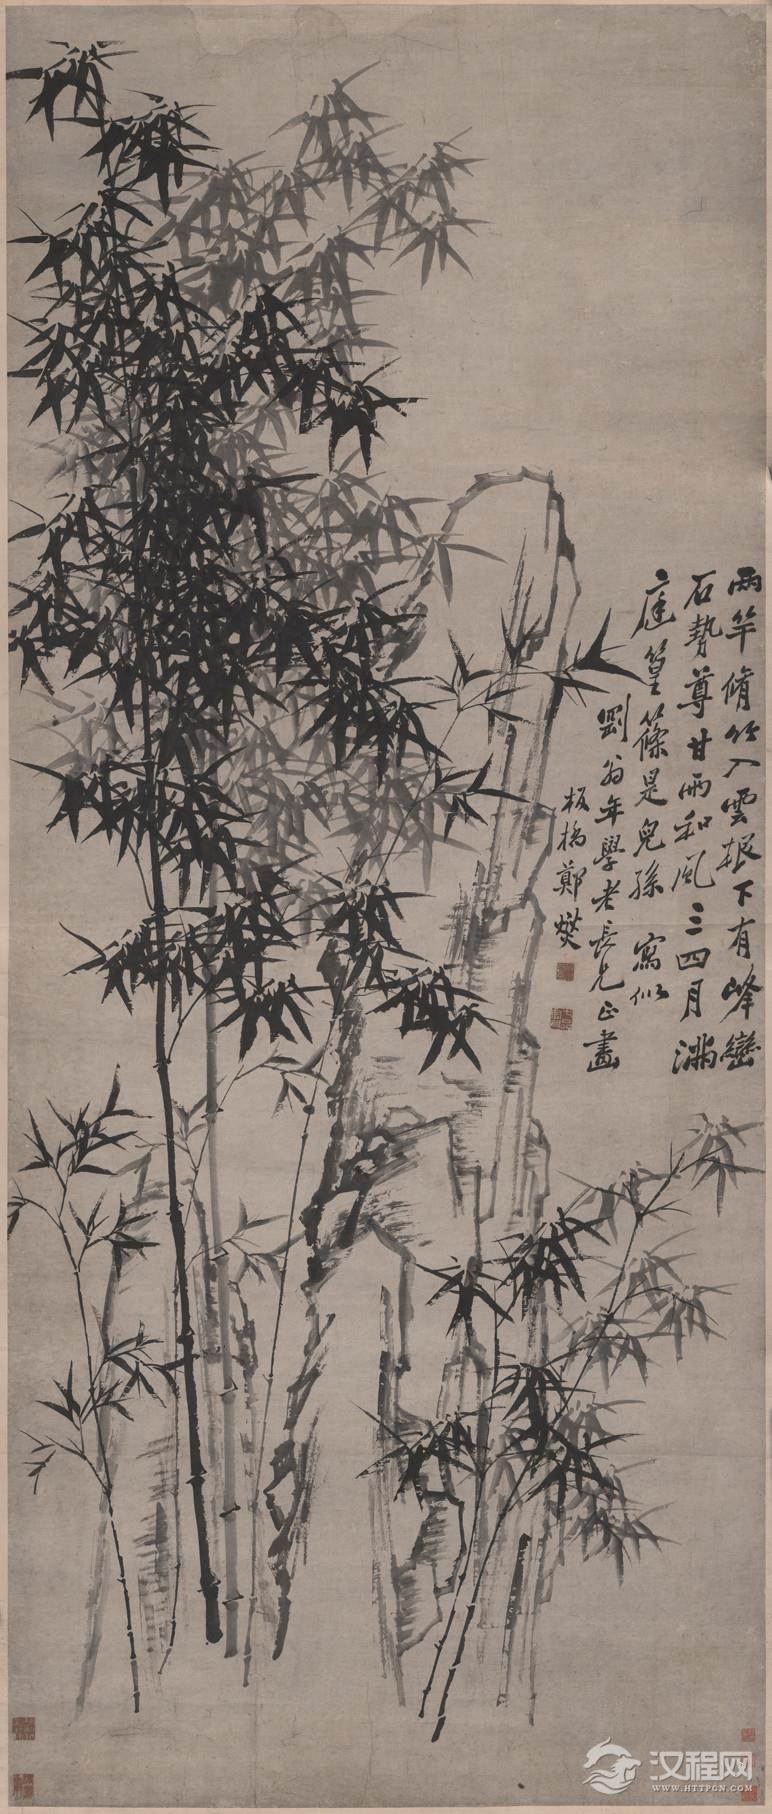 兩竿脩竹入雲根下有峰巒
石勢尊甘雨和風三四月滿
庭篁篠是兒孫 寫似
劉翁年學老長兄正畫
板橋鄭燮
汉程网
WWW.HTTPCN.COM